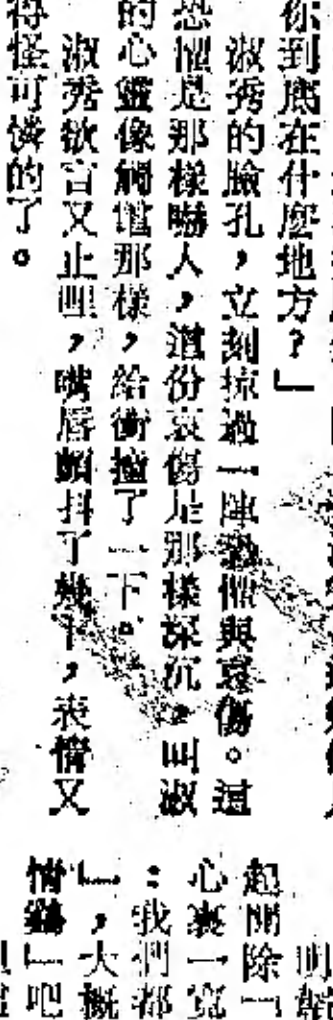 你到底在什麼地方？」
淑秀的臉孔，立刻掠過一陣恐懼與哀傷。這
恐懼是那樣嚇人，這份哀傷是那樣深沉，叫淑
的心靈像觸電那樣，給衝撞了一下。
淑秀欲言又止哩，嘴唇顫抖了幾下，表情又
得怪可憐的了。
起開除一
心裏一寬
：我們都
」，大概
情
」吧